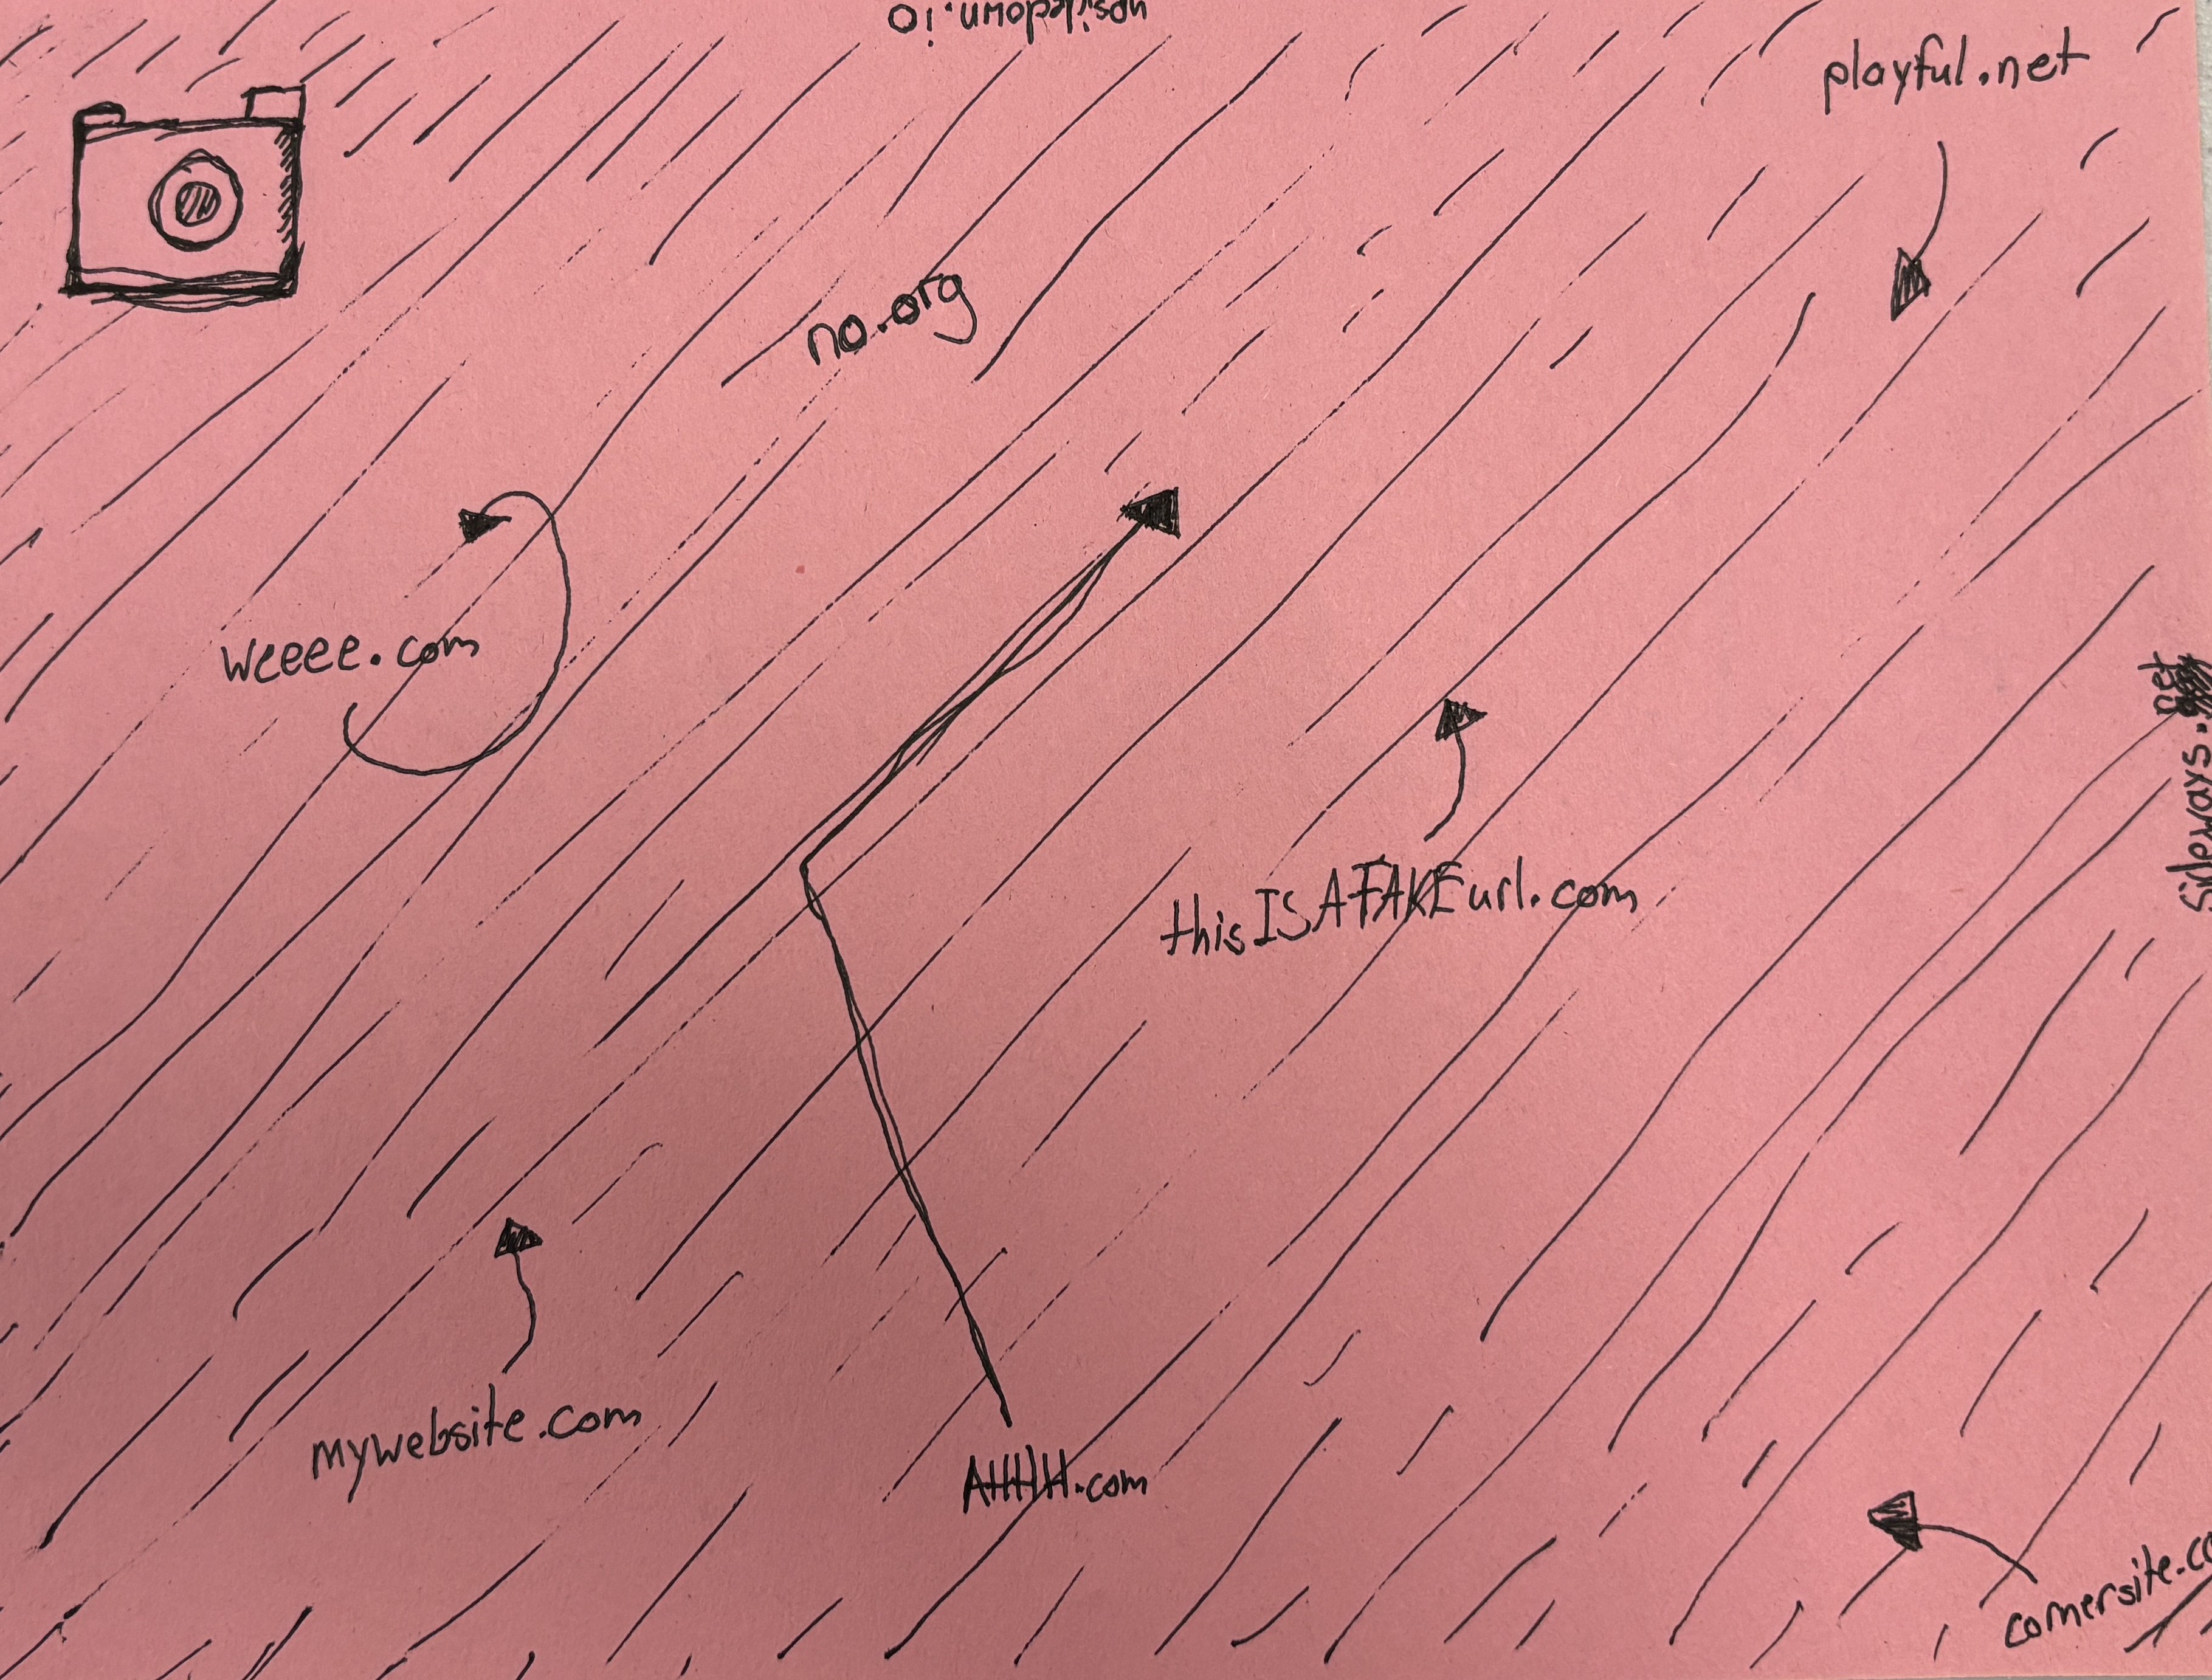 upsidedown.io
playful.net
no.org
weeee.com
sideways.net
thisISAFAKEurl.com
mywebsite.com
AHHHH.com
cornersite.co